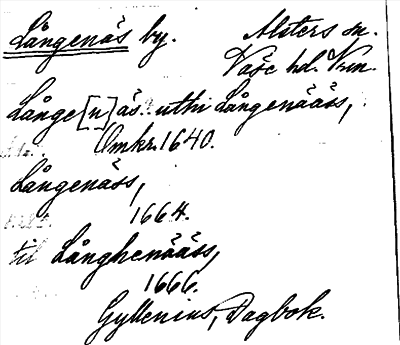 Långenäs by. Alsters sn.
Väse hd. Vrm.
Långe[n]äs: uthi Långenääss,
Omkr. 1640.
Långenäss,
1664.
til Långhenääss,
1666.
Gyllenius, Dagbok.